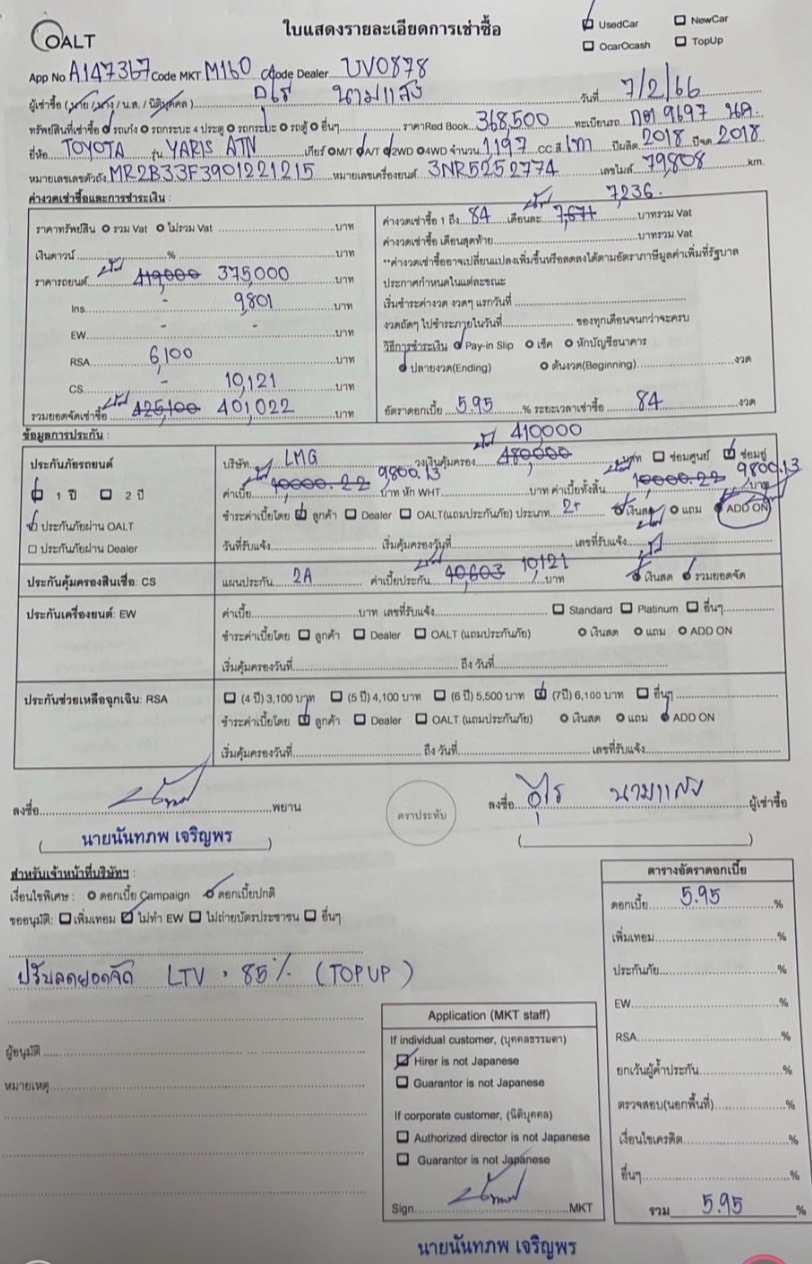 OALT
ใบแสดงรายละเอียดการเช่าซื้อ
UsedCar NewCar
OcarOcash TopUp
App No A147367 Code MKT M160 Code Dealer UV0878
ผู้เช่าซื้อ (นาย / นาง / น.ส. / นิติบุคคล) อุไร นามแสง วันที่ 7/2/66
ทรัพย์สินที่เช่าซื้อ รถเก๋ง รถกระบะ 4 ประตู รถกระบะ รถตู้ อื่นๆ ราคาRed Book 368,500 ทะเบียนรถ กต 9697 นค.
ยี่ห้อ TOYOTA รุ่น YARIS ATN เกียร์ M/T A/T 2WD 4WD จำนวน 1,197 CC.สี เทา ปีผลิต 2018 ปีจด 2018
หมายเลขเลขตัวถัง MR2B33F3901221215 หมายเลขเครื่องยนต์ 3NR5252774 เลขไมล์ 79,808 km.
ค่างวดเช่าซื้อและการชำระเงิน :
ราคาทรัพย์สิน รวม Vat ไม่รวม Vat บาท
เงินดาวน์ % บาท
ราคารถยนต์ 419,000 375,000 บาท
Ins - 9,801 บาท
EW - - บาท
RSA 6,100 บาท
CS - 10,121 บาท
รวมยอดจัดเช่าซื้อ 425,100 401,022 บาท
7,236.
ค่างวดเช่าซื้อ 1 ถึง 84 เดือนละ 7,671 บาทรวม Vat
ค่างวดเช่าซื้อ เดือนสุดท้าย บาทรวม Vat
**ค่างวดเช่าซื้ออาจเปลี่ยนแปลงเพิ่มขึ้นหรือลดลงได้ตามอัตราภาษีมูลค่าเพิ่มที่รัฐบาล
ประกาศกำหนดในแต่ละขณะ
เริ่มชำระค่างวด งวดๆ แรกวันที่
งวดถัดๆ ไปชำระภายในวันที่ ของทุกเดือนจนกว่าจะครบ
วิธีการชำระเงิน Pay-in Slip เช็ค หักบัญชีธนาคาร
ปลายงวด(Ending) ต้นงวด(Beginning) งวด
อัตราดอกเบี้ย 5.95 % ระยะเวลาเช่าซื้อ 84 งวด
ข้อมูลการประกัน :
ประกันภัยรถยนต์
1 ปี 2 ปี
ประกันภัยผ่าน OALT
ประกันภัยผ่าน Dealer
410,000
บริษัท LMG วงเงินคุ้มครอง 480,000 บาท ซ่อมศูนย์ ซ่อมอู่
9,800.13 9800.13
ค่าเบี้ย 10000.22 บาท หัก WHT บาท ค่าเบี้ยทั้งสิ้น 10000.22 บาท
ชำระค่าเบี้ยโดย ลูกค้า Dealer OALT(แถมประกันภัย) ประเภท 2+ เงินสด แถม ADD ON
วันที่รับแจ้ง เริ่มคุ้มครองวันที่ เลขที่รับแจ้ง
ประกันคุ้มครองสินเชื่อ: CS แผนประกัน 2A ค่าเบี้ยประกัน 40,603 10,121 บาท เงินสด รวมยอดจัด
ประกันเครื่องยนต์: EW ค่าเบี้ย บาท เลขที่รับแจ้ง Standard Platinum อื่นๆ
ชำระค่าเบี้ยโดย ลูกค้า Dealer OALT (แถมประกันภัย) เงินสด แถม ADD ON
เริ่มคุ้มครองวันที่ ถึง วันที่
ประกันช่วยเหลือฉุกเฉิน: RSA (4 ปี) 3,100 บาท (5 ปี) 4,100 บาท (6 ปี) 5,500 บาท (7ปี) 6,100 บาท อื่นๆ
ชำระค่าเบี้ยโดย ลูกค้า Dealer OALT (แถมประกันภัย) เงินสด แถม ADD ON
เริ่มคุ้มครองวันที่ ถึง วันที่ เลขที่รับแจ้ง
ลงชื่อ พยาน
(นายนันทภพ เจริญพร)
ตราประทับ
ลงชื่อ อุไร นามแสง ผู้เช่าซื้อ
( )
สำหรับเจ้าหน้าที่บริษัทฯ :
เงื่อนไขพิเศษ : ดอกเบี้ย Campaign ดอกเบี้ยปกติ
ขออนุมัติ: เพิ่มเทอม ไม่ทำ EW ไม่ถ่ายบัตรประชาชน อื่นๆ
ปรับลดยอดจัด LTV . 85% (TOPUP)
ผู้อนุมัติ
หมายเหตุ
Application (MKT staff)
If individual customer, (บุคคลธรรมดา)
Hirer is not Japanese
Guarantor is not Japanese
If corporate customer, (นิติบุคคล)
Authorized director is not Japanese
Guarantor is not Japanese
Sign MKT
นายนันทภพ เจริญพร
ตารางอัตราดอกเบี้ย
ดอกเบี้ย 5.95 %
เพิ่มเทอม %
ประกันภัย %
EW %
RSA %
ยกเว้นผู้ค้ำประกัน %
ตรวจสอบ(นอกพื้นที่) %
เงื่อนไขเครดิต %
อื่นๆ %
รวม 5.95 %